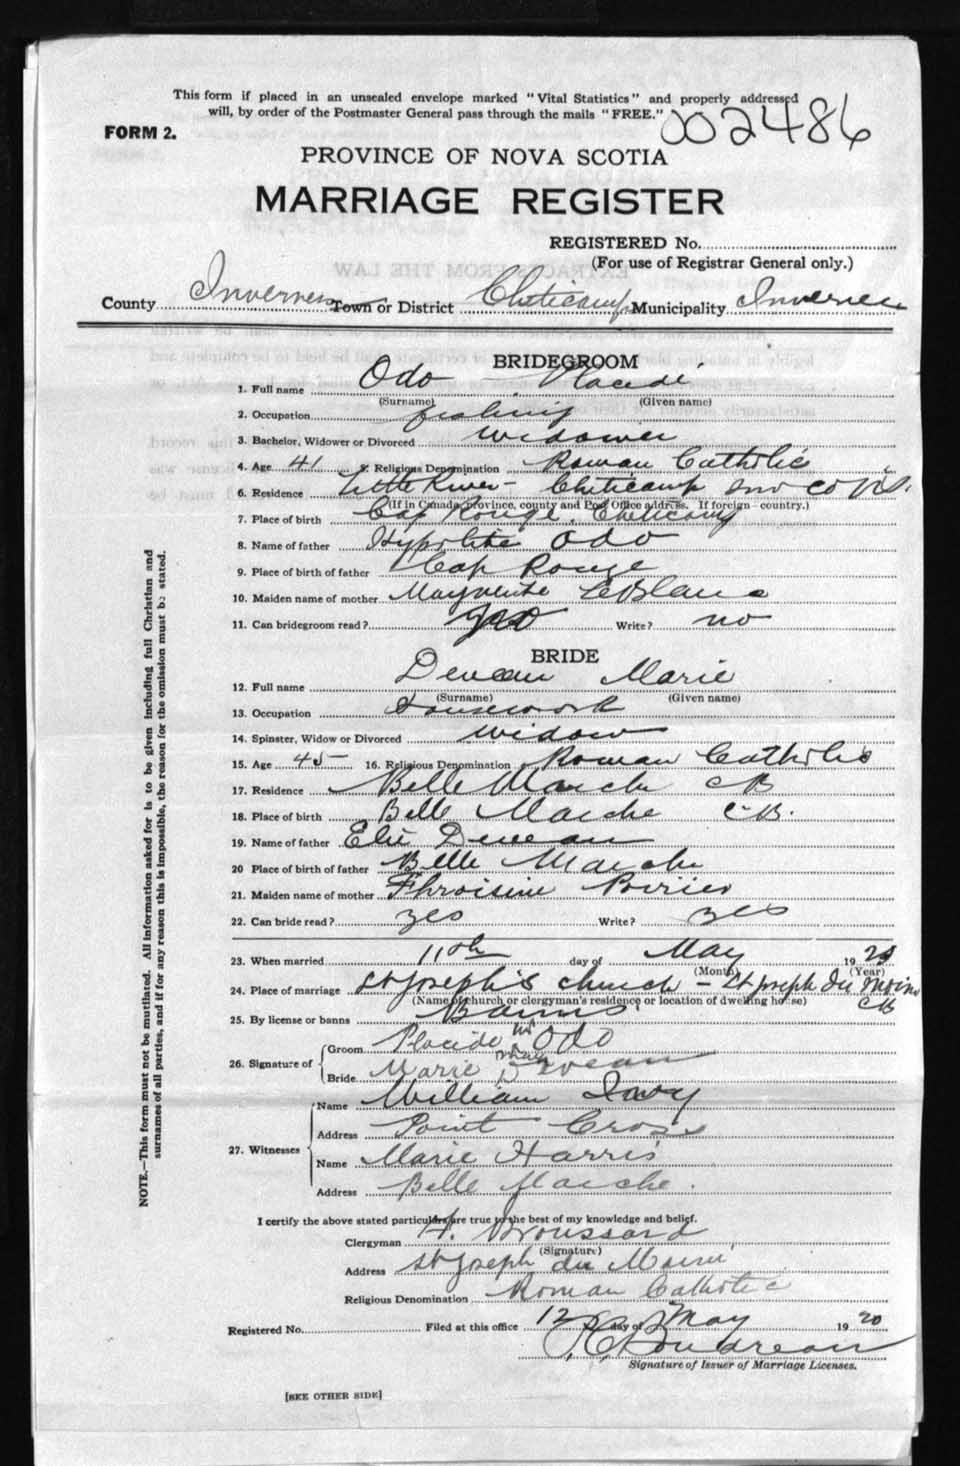 This form if placed in an unsealed envelope marked "Vital Statistics" and properly addressed
will, by order of the Postmaster General pass through the mails "FREE."
002486
FORM 2.
PROVINCE OF NOVA SCOTIA
MARRIAGE REGISTER
REGISTERED No.
(For use of Registrar General only.)
County Inverness Town or District Cheticamp Municipality Inverness
BRIDEGROOM
1. Full name Odo Placide
(Surname) (Given name)
2. Occupation fishing
3. Bachelor, Widower or Divorced widower
4. Age 41 5. Religious Denomination Roman Catholic
6. Residence Little River - Cheticamp Inv Co N.S.
(If in Canada, province, county and Post Office address. If foreign—country.)
7. Place of birth Cap Rouge, Cheticamp
8. Name of father Hypolite Odo
9. Place of birth of father Cap Rouge
10. Maiden name of mother Marguerite LeBlanc
11. Can bridegroom read? Write? no
BRIDE
12. Full name Deveau Marie
(Surname) (Given name)
13. Occupation Housework
14. Spinster, Widow or Divorced widow
15. Age 45 16. Religious Denomination Roman Catholic
17. Residence Belle Marche CB
18. Place of birth Belle Marche CB.
19. Name of father Elie Deveau
20 Place of birth of father Belle Marche
21. Maiden name of mother Poirier
22. Can bride read? yes Write? yes
23. When married 11th day of May 19
(Month) (Year)
24. Place of marriage St Joseph's church - St Joseph du Moine
CB
(Name of church or clergyman's residence or location of dwelling house)
25. By license or banns Banns
26. Signature of Groom Placide Odo
Bride Marie Deveau
27. Witnesses
Name William
Address Point Cross
Name Marie Harris
Address Belle Marche.
I certify the above stated particulars are true to the best of my knowledge and belief.
Clergyman A. Broussard
(Signature)
Address St Joseph du Moine
Religious Denomination Roman Catholic
Registered No. Filed at this office 12 day of May 1920
Boudreau
Signature of Issuer of Marriage Licenses.
[SEE OTHER SIDE]
NOTE.—This form must not be mutilated. All information asked for is to be given including full Christian and
surnames of all parties, and if for any reason this is impossible, the reason for the omission must be stated.